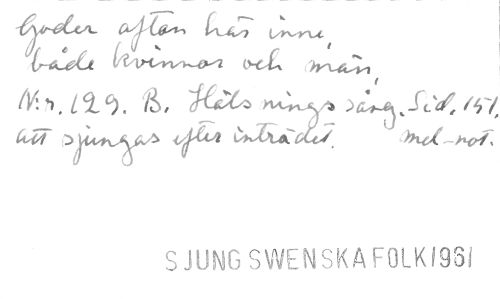 Goder afton här inne,
både kvinnor och män,
N:r. 129. B. Hälsningssång. Sid. 151.
att sjungas efter inträdet. mel-not.
SJUNG SWENSKA FOLK 1961